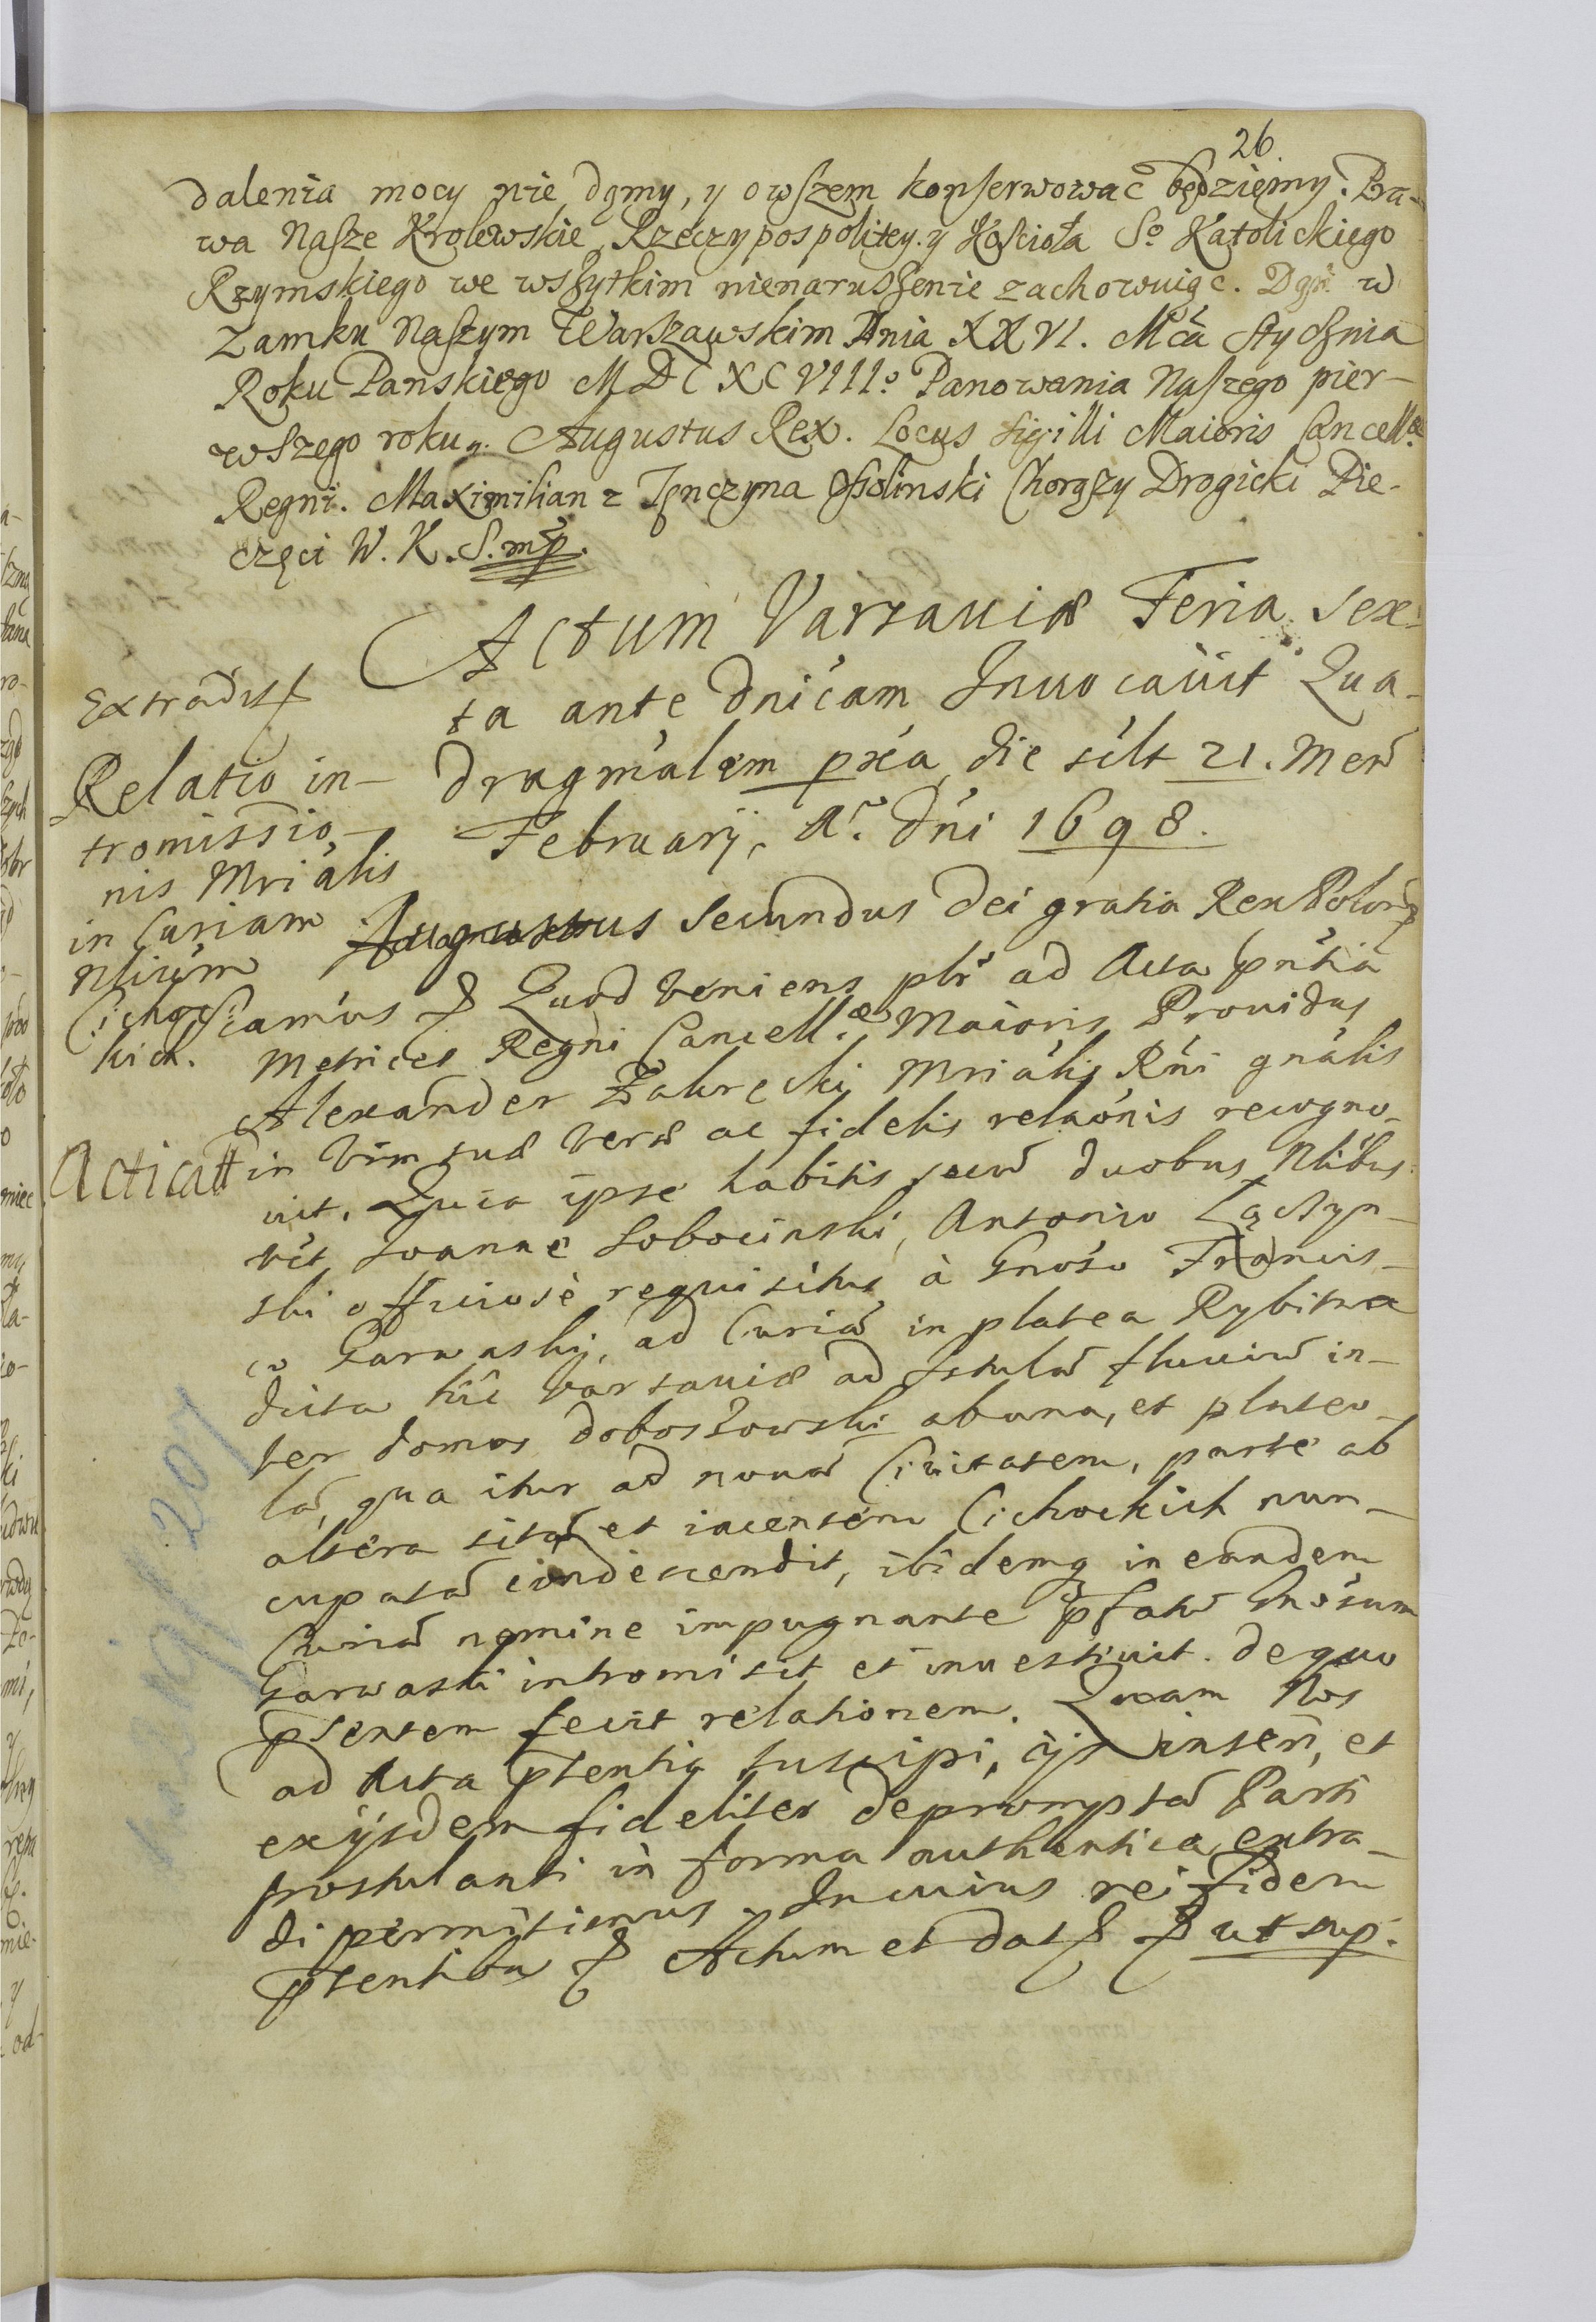 26.
dalenia mocy nie damy, y owszem konserwować będziemy. Pra-
wa Nasze Krolewskie, Rzeczypospolitey. y Kościoła So Katolickiego
Rzymskiego we wszytkim nienaruszenie zachowuiąc. Dan w
Zamku Naszym Warszawskim Dnia XXVI. Mca Stycznia
Roku Panskiego MDCXCVIIIo Panowania Naszego pier-
wszego roku. Augustus Rex. Locus Sigilli Maioris Cancellæ
Regni. Maximilian z Tęnczyna Ossolinski Chorąży Drogicki Pie-
częci W. K. S. mp.
Actum Varsauiæ Feria sex-
ta ante Dnicam Inuocauit Qua-
dragmalem pxa, die silt 21. Men
Februarij, Ao. Dni 1698.
Extradit
Relatio in-
tromissio-
nis Mrialis
in Curiam
Nlium
Cichoc-
kich.
Augustus Secundus Dei gratia Rex Polon
camus & Quod veniens plr ad Acta pntia
Metrices Regni Cancellæ Maioris Prouidus
Alexander Zakrecki Mrialis Rni gnalis
Acticatt
in vim suæ veræ ac fidelis relaonis recogno-
uit. Quia ipse habitis secu duobus Nlibus
vit Joanne Sobocinski, Antonio Łączyn-
ski officiose requisitus à Gnoso Francis-
co Garwaski, ad Curia in platea Rybitwa
dicta hic Varsauiæ ad Istula fluuiu in-
ter domos Doboszowski ab una, et plateo-
la, qua itur ad noua Ciuitatem, parte ab
altera sita et iacentem Cichockich nun-
cupata condescendit, ibidemq in eandem
Curia nemine impugnante pfatu Gnosum
Garwaski intromisit et inuestiuit. de quo
psentem fecit relationem. Quam Nos
ad Acta psentia suscipi, ijs inseri, et
exijsdem fideliter depromptta Parti
postulanti in forma authentica extra-
di permisimus. In cuius rei fidem
psentibus & Actum et dat & ut sup.